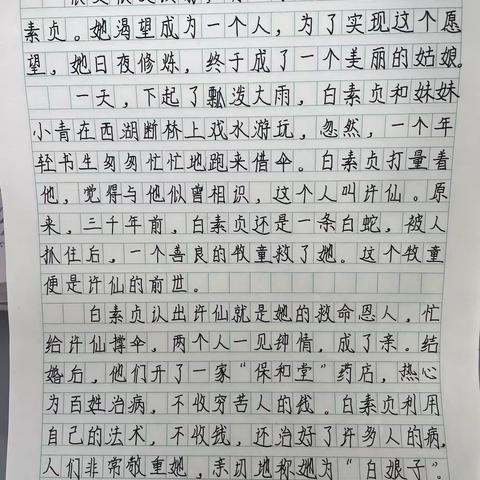 素贞。她渴望成为一个人，为了实现这个愿
望，她日夜修炼，终于成了一个美丽的姑娘。
一天，下起了瓢泼大雨，白素贞和妹妹
小青在西湖断桥上戏水游玩，忽然，一个年
轻书生匆匆忙忙地跑来借伞。白素贞打量着
他，觉得与他似曾相识，这个人叫许仙。原
来，三千年前，白素贞还是一条白蛇，被人
抓住后，一个善良的牧童救了她。这个牧童
便是许仙的前世。
白素贞认出许仙就是她的救命恩人，忙
给许仙撑伞，两个人一见钟情，成了亲。结
婚后，他们开了一家“保和堂”药店，热心
为百姓治病，不收穷苦人的钱。白素贞利用
自己的法术，不收钱，还治好了许多人的病，
人们非常敬重她，亲切地称她为“白娘子”。